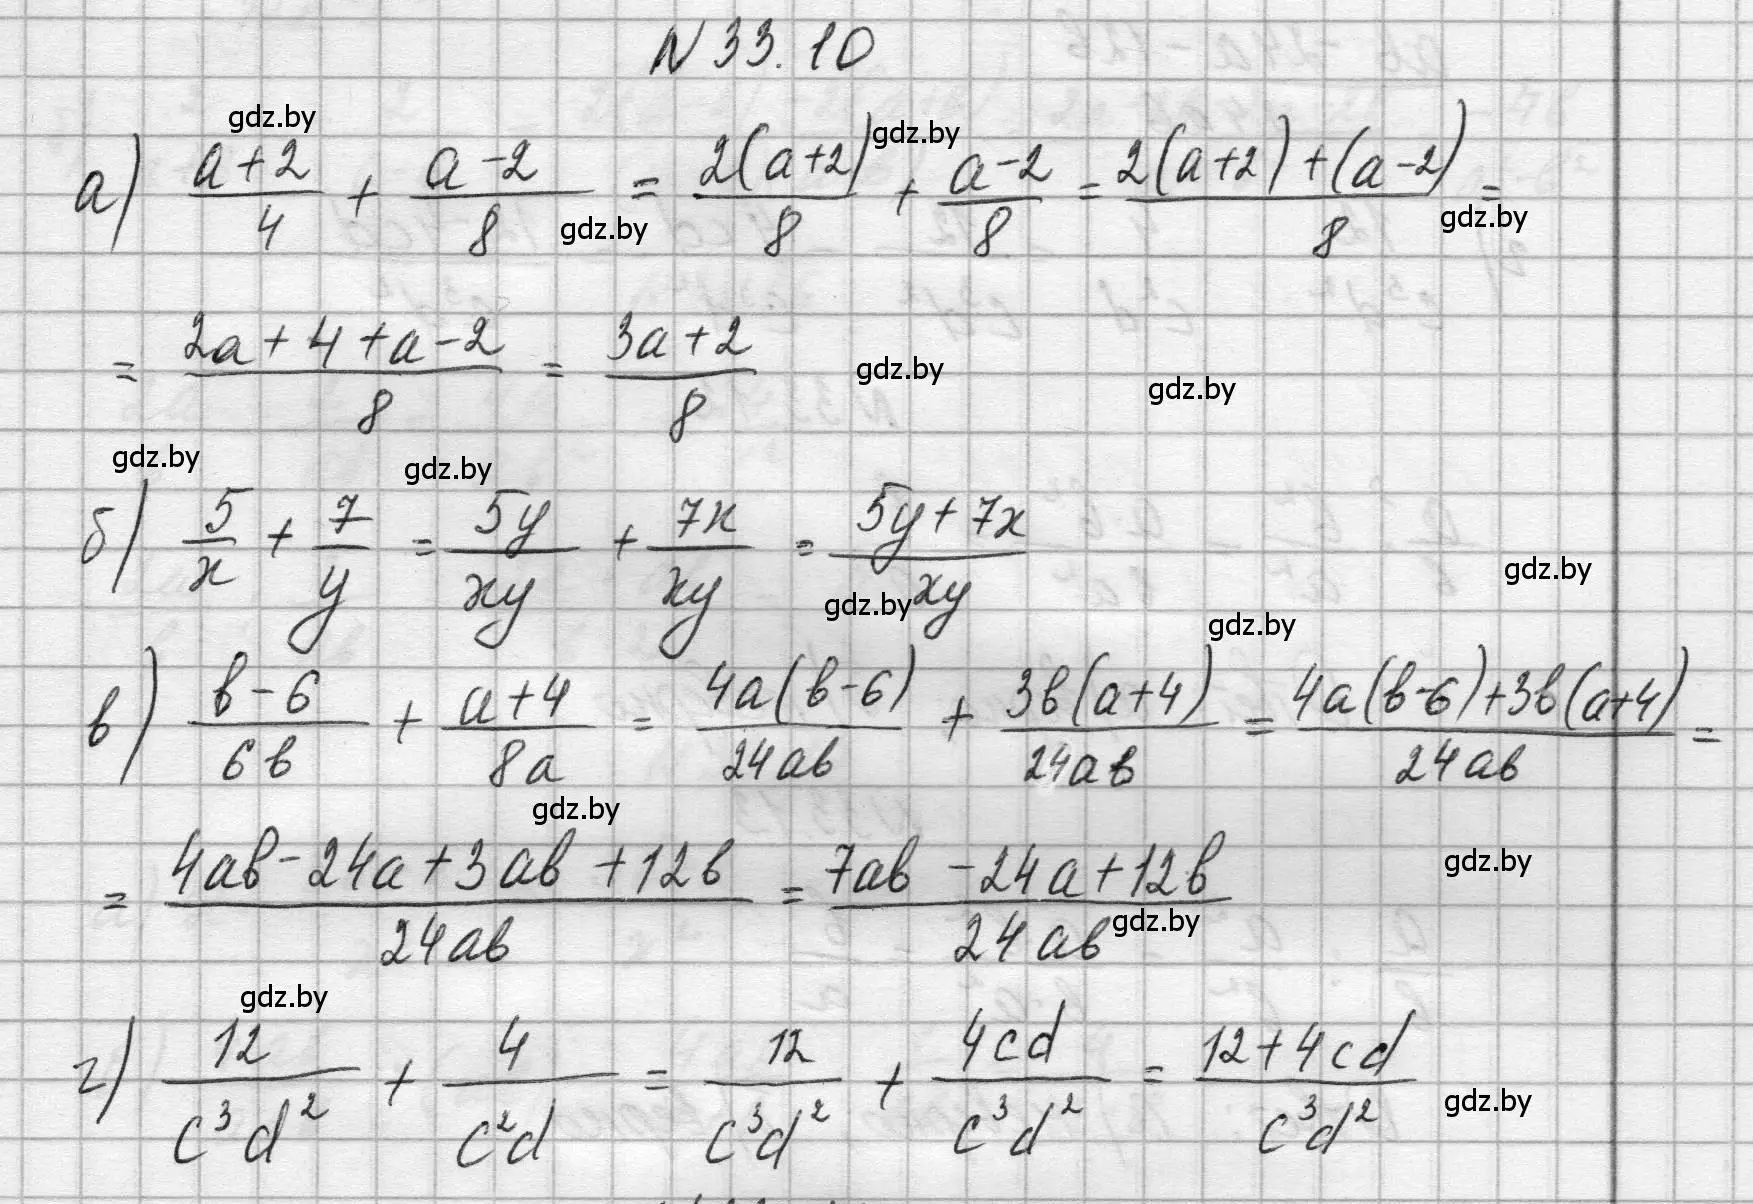 N 33.10
gdz.by
а) (a+2)/4 + (a-2)/8 = 2(a+2)/8 + (a-2)/8 = (2(a+2)+(a-2))/8 =
gdz.by gdz.by gdz.by
= (2a+4+a-2)/8 = (3a+2)/8
gdz.by gdz.by
gdz.by gdz.by
б) 5/x + 7/y = 5y/xy + 7x/xy = (5y+7x)/xy
gdz.by gdz.by gdz.by
в) (b-6)/6b + (a+4)/8a = 4a(b-6)/24ab + 3b(a+4)/24ab = (4a(b-6)+3b(a+4))/24ab =
gdz.by
= (4ab-24a+3ab+12b)/24ab = (7ab-24a+12b)/24ab
gdz.by gdz.by
gdz.by
г) 12/c³d² + 4/c²d = 12/c³d² + 4cd/c³d² = (12+4cd)/c³d²
gdz.by